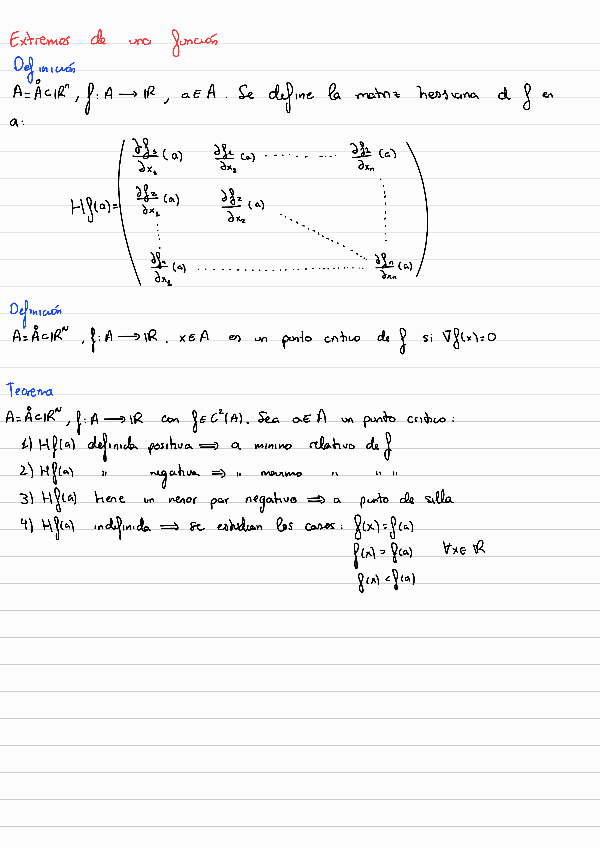 Extremos de una función
Definición
A=Å⊂ℝⁿ, f: A → ℝ, a∈A. Se define la matriz hessiana d f en
a:
∂f₁/∂x₁ (a) ∂f₁/∂x₂ (a) ........... ∂f₁/∂xₙ (a)
Hf(a)= ∂f₂/∂x₁ (a) ∂f₂/∂x₂ (a)
∂fₙ/∂x₁ (a) ........... ∂fₙ/∂xₙ (a)
Definición
A=Å⊂ℝᴺ, f: A → ℝ. x∈A es un punto crítico de f si ∇f(x)=0
Teorema
A=Å⊂ℝᴺ, f: A → ℝ con f∈C²(A). Sea a∈A un punto crítico:
1) Hf(a) definida positiva ⟹ a mínimo relativo de f
2) Hf(a) " negativa ⟹ " máximo " " "
3) Hf(a) tiene un menor par negativo ⟹ a punto de silla
4) Hf(a) indefinida ⟹ se estudian los casos: f(x)=f(a)
f(x)>f(a) ∀x∈ℝ
f(x)<f(a)